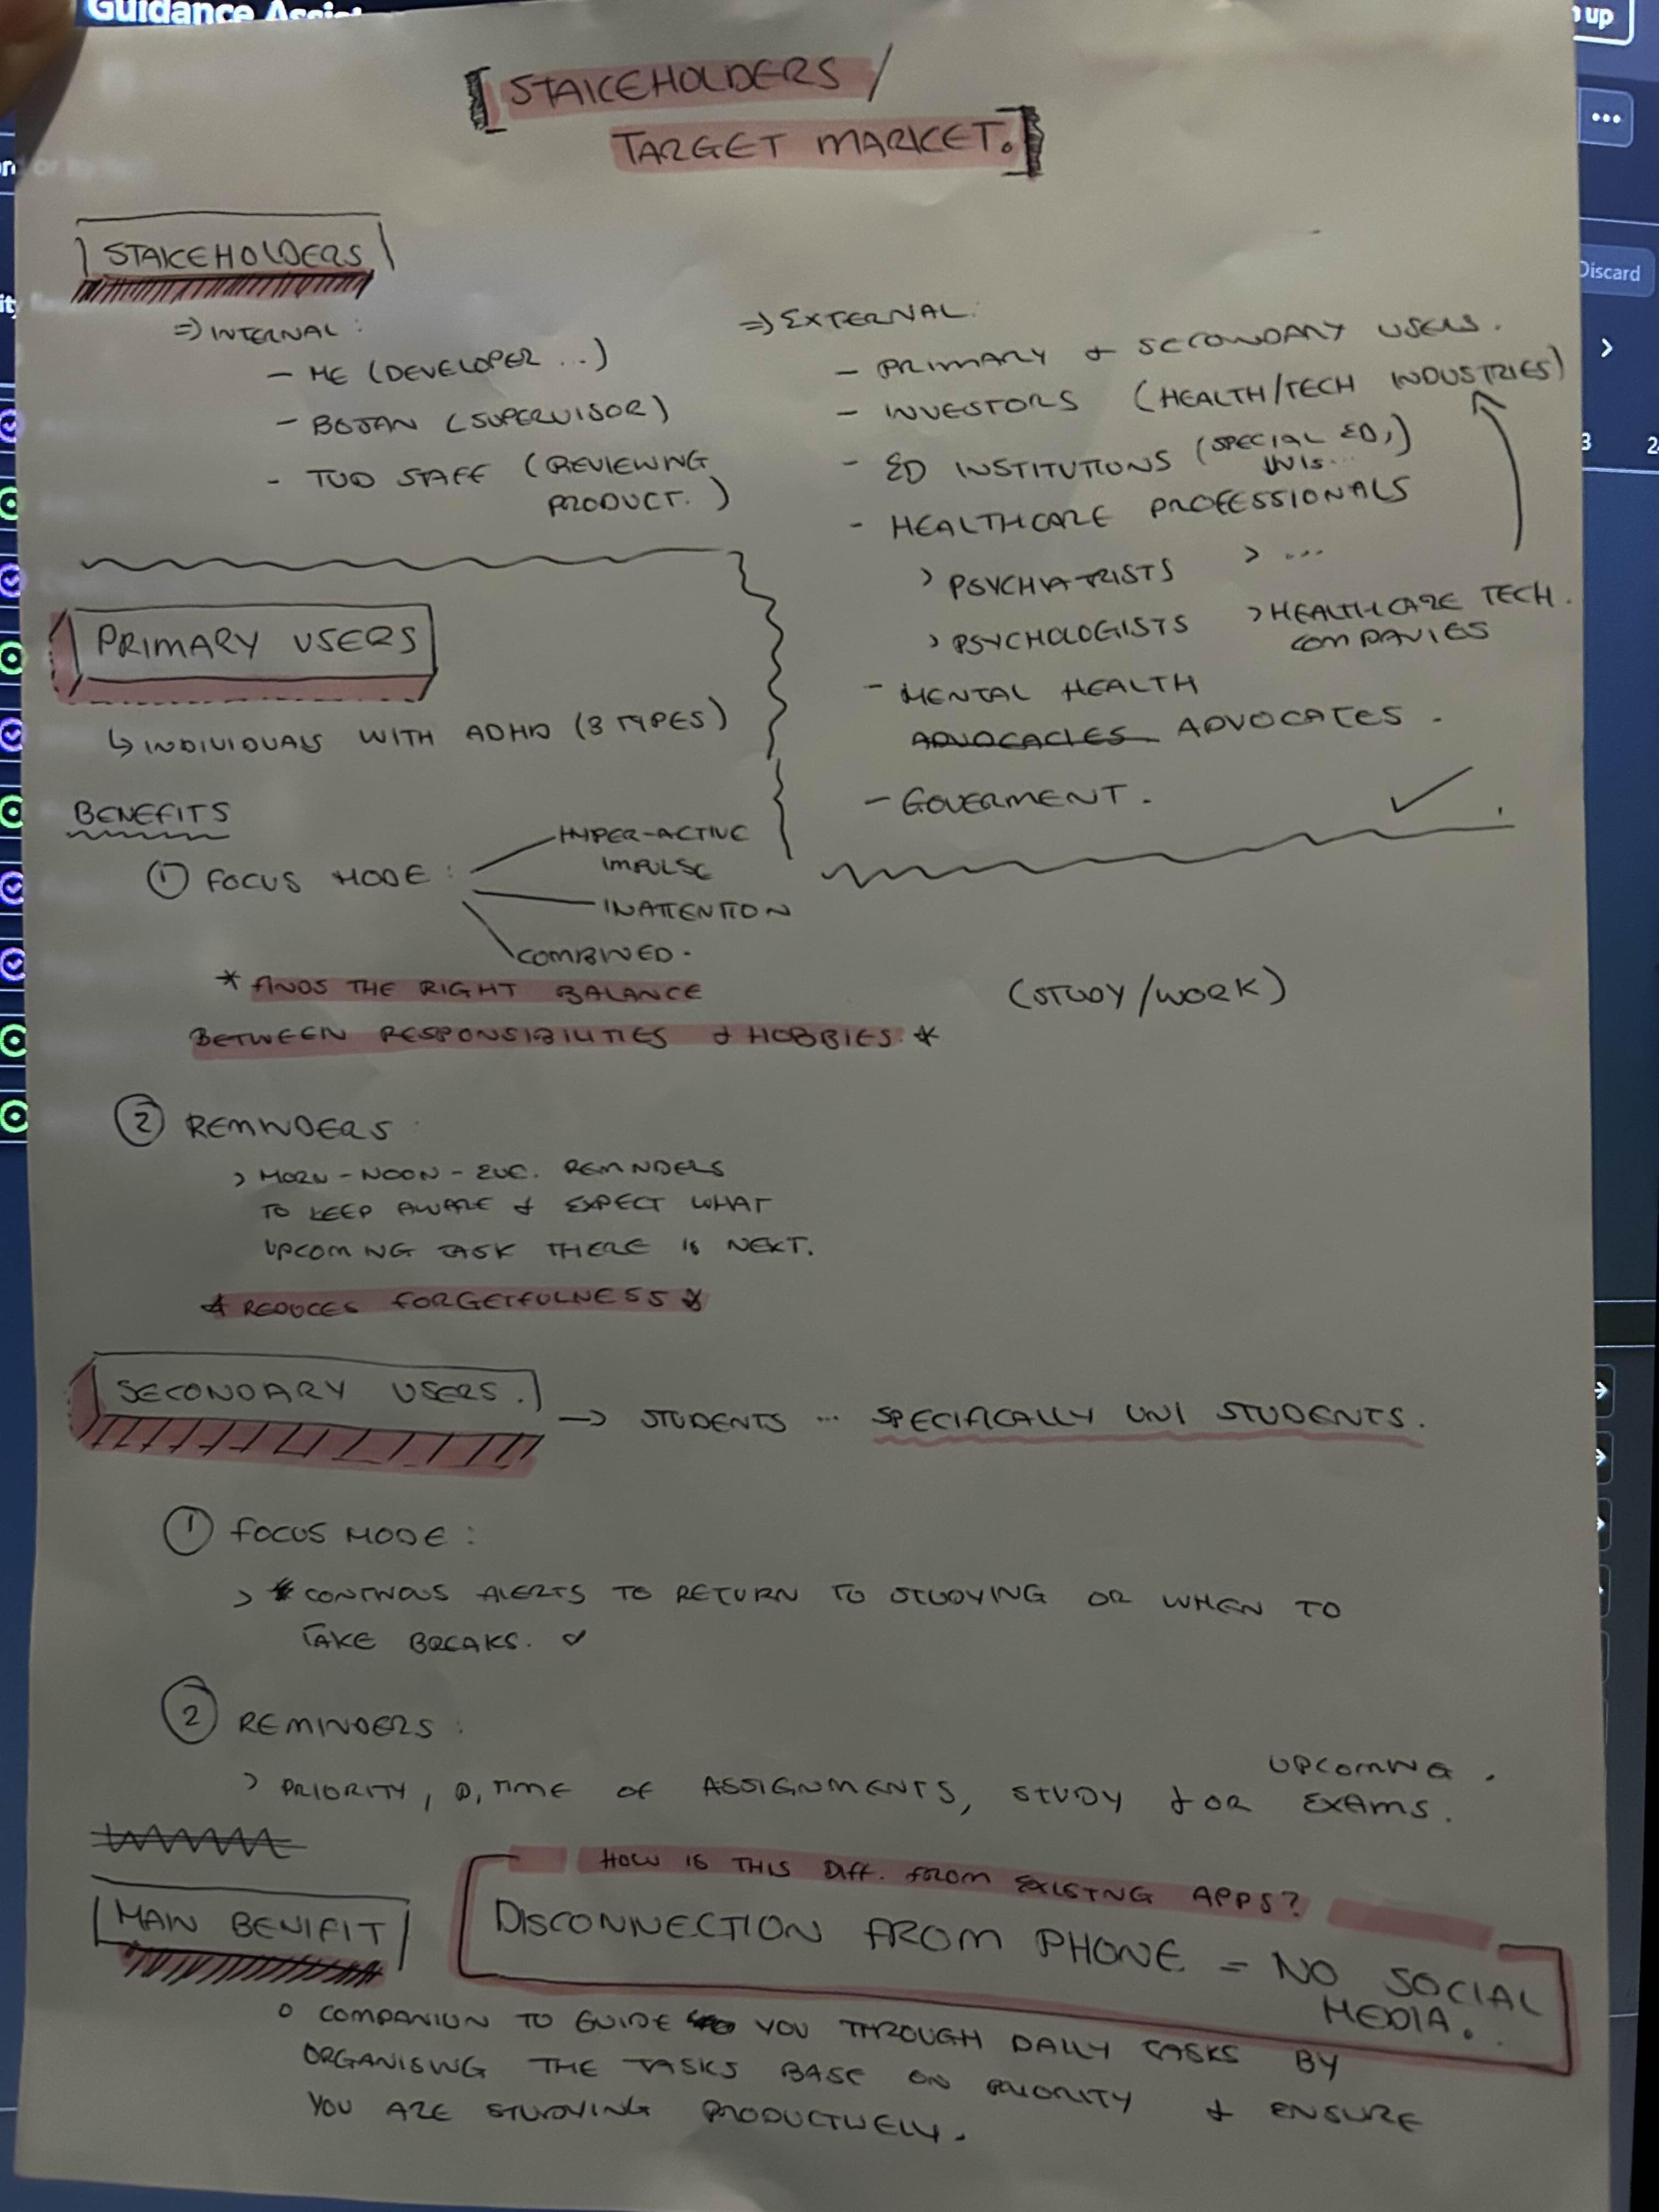 Guidance Assist
up
Discard
[STAKEHOLDERS /
TARGET MARKET.]
STAKEHOLDERS
=> INTERNAL :
- ME (DEVELOPER ...)
- BOJAN (SUPERVISOR)
- TUD STAFF (REVIEWING
PRODUCT. )
=> EXTERNAL.
- PRIMARY & SECONDARY USERS.
- INVESTORS (HEALTH/TECH INDUSTRIES)
- ED INSTITUTIONS (SPECIAL ED,)
UNIS...
- HEALTHCARE PROFESSIONALS
> PSYCHIATRISTS > ...
> PSYCHOLOGISTS > HEALTHCARE TECH.
COMPANIES
- MENTAL HEALTH
ADVOCACIES ADVOCATES.
- GOVERMENT.
PRIMARY USERS
↳ INDIVIDUALS WITH ADHD (3 TYPES)
BENEFITS
① FOCUS MODE :
HYPER-ACTIVE
IMPULSE
INATTENTION
COMBINED.
* FINDS THE RIGHT BALANCE
BETWEEN RESPONSIBILITIES & HOBBIES. *
(STUDY/WORK)
② REMINDERS :
> MORN-NOON-EVE. REMINDERS
TO KEEP AWARE & EXPECT WHAT
UPCOMING TASK THERE IS NEXT.
* REDUCES FORGETFULNESS *
SECONDARY USERS.
→ STUDENTS ... SPECIFICALLY UNI STUDENTS.
① FOCUS MODE :
> * CONTINOUS ALERTS TO RETURN TO STUDYING OR WHEN TO
TAKE BREAKS.
② REMINDERS :
UPCOMING.
> PRIORITY, TIME OF ASSIGNMENTS, STUDY FOR EXAMS.
MAIN BENIFIT
HOW IS THIS DIFF. FROM EXISTING APPS?
DISCONNECTION FROM PHONE = NO SOCIAL
MEDIA.
○ COMPANION TO GUIDE YOU THROUGH DAILY TASKS BY
ORGANISING THE TASKS BASE ON PRIORITY & ENSURE
YOU ARE STUDYING PRODUCTIVELY.